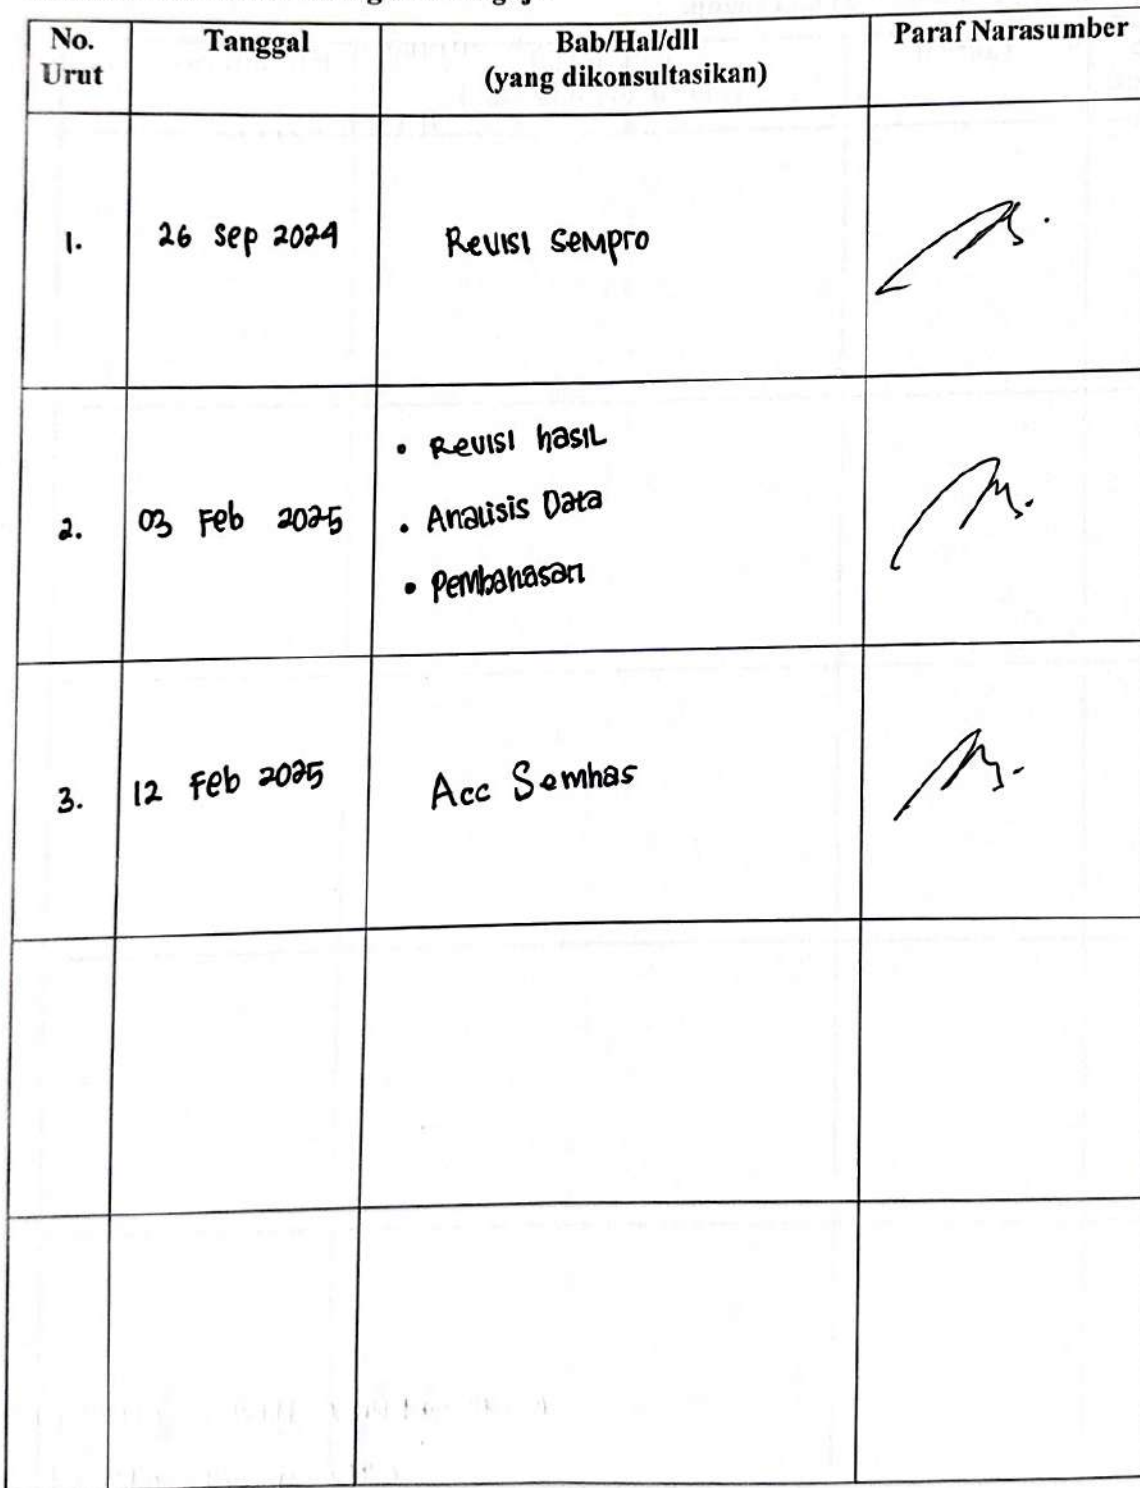 No. Urut
Tanggal
Bab/Hal/dll
(yang dikonsultasikan)
Paraf Narasumber
1.
26 Sep 2024
Revisi Sempro
2.
03 Feb 2025
• Revisi hasil
• Analisis Data
• Pembahasan
3.
12 Feb 2025
Acc Semhas